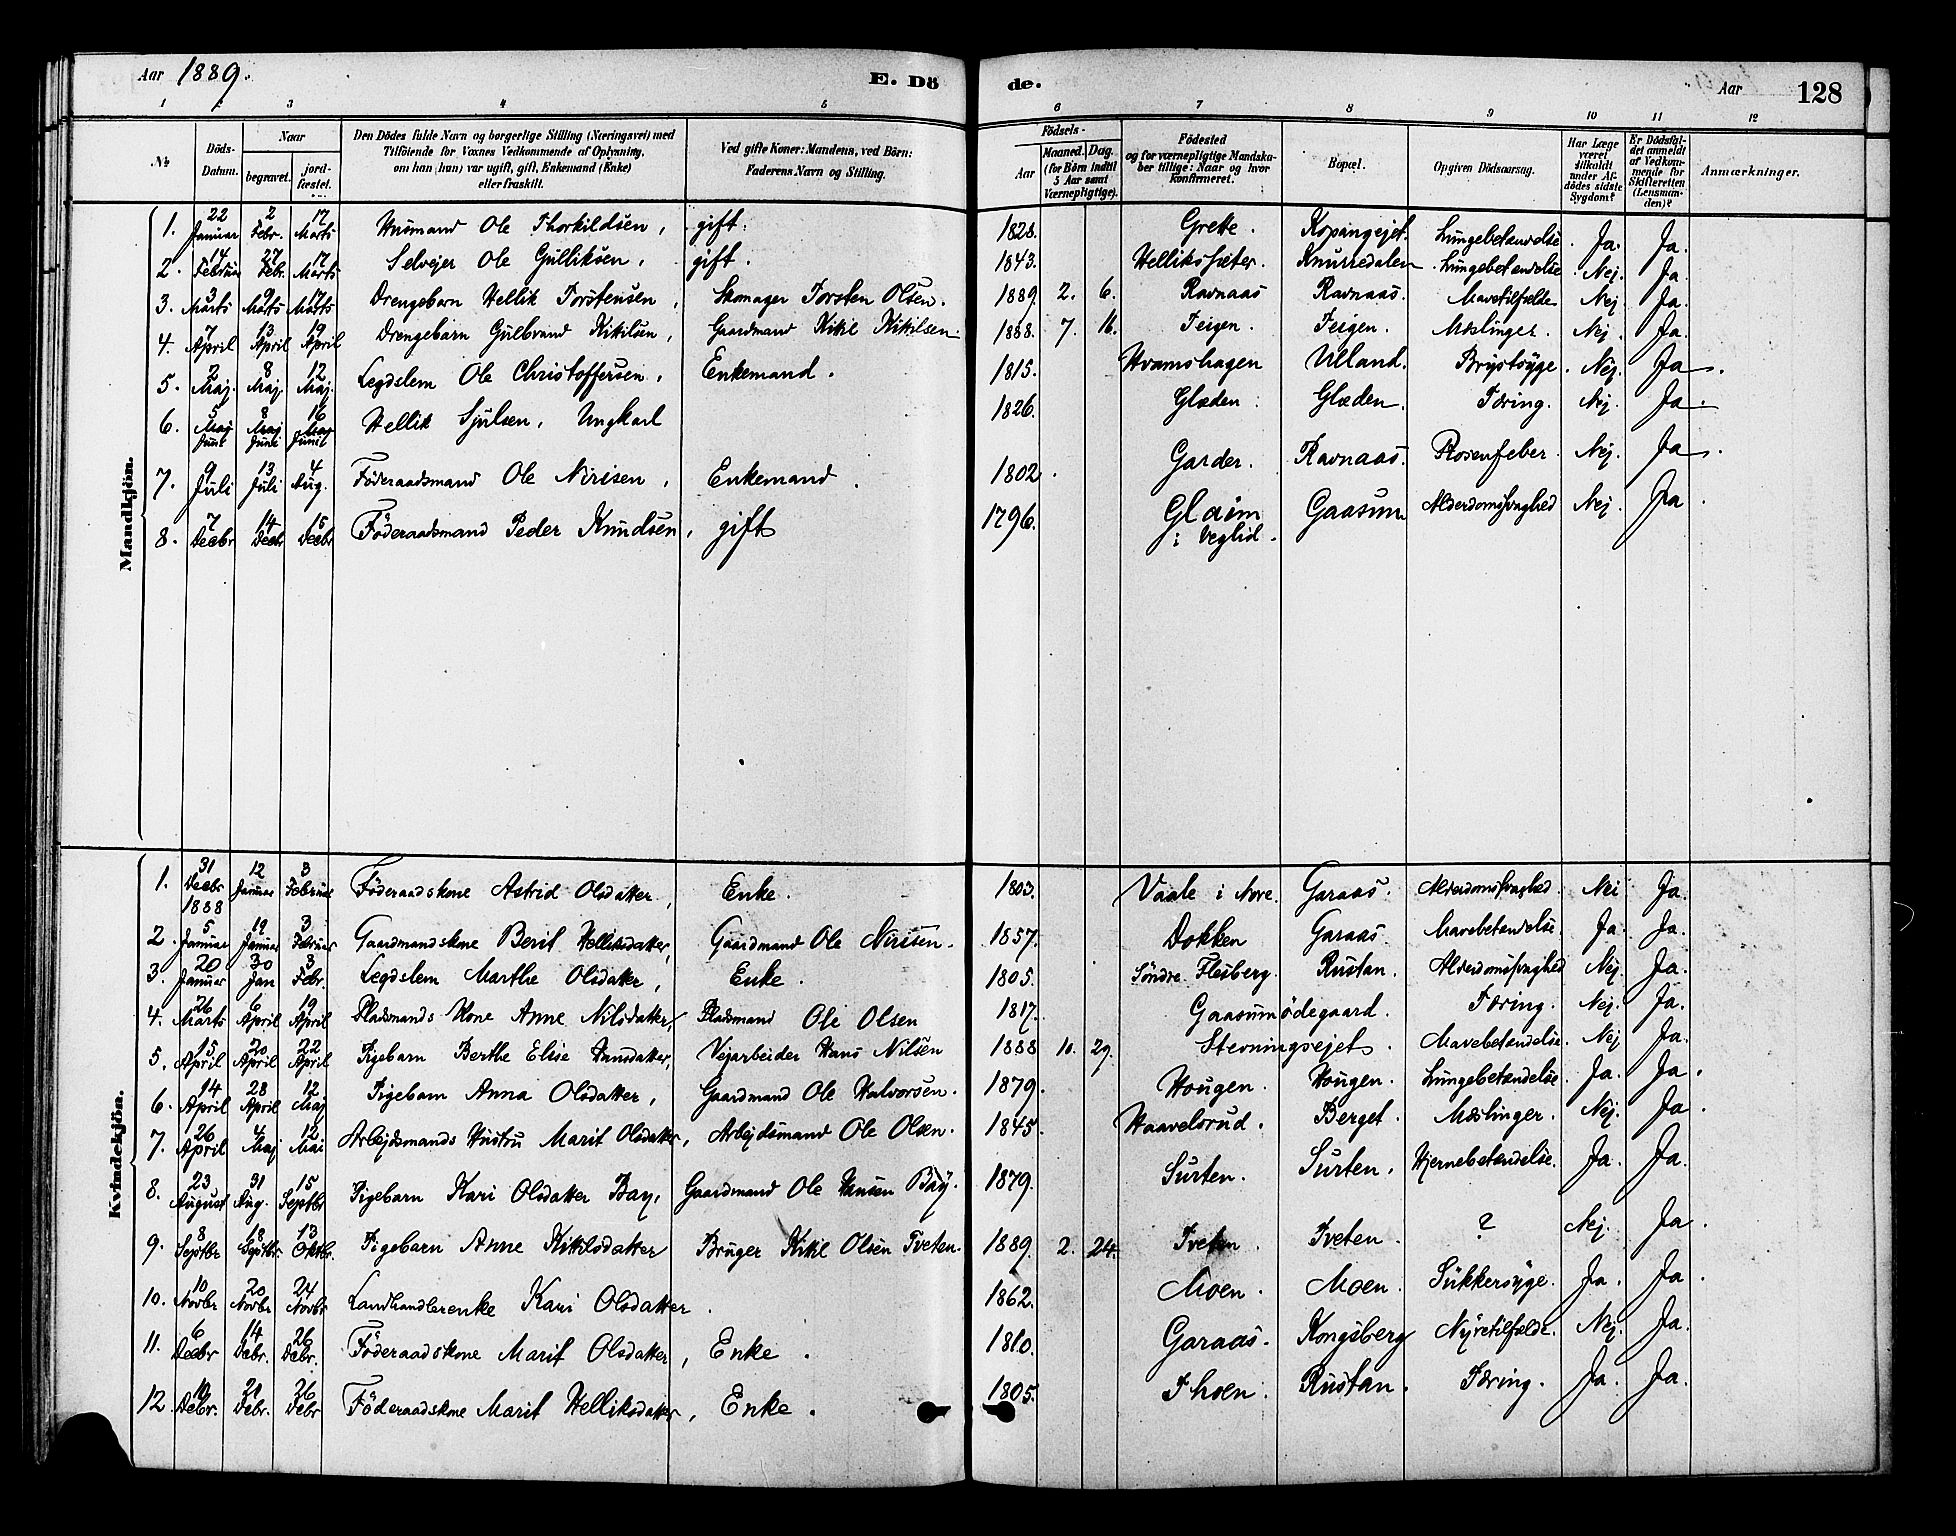 Aar 1889. E. Dö de. Aar 128
1 2 3 4 5 6 7 8 9 10 11 12
No Döds-Datum. Naar begravet. jord-fæstet. Den Dödes fulde Navn og borgerlige Stilling (Næringsvei) med Tilföiende for Voxnes Vedkommende af Oplysning, om han (hun) var ugift, gift, Enkemand (Enke) eller fraskilt. Ved gifte Koner: Mandens, ved Börn: Faderens Navn og Stilling. Födsels- Aar Maaned. Dag. (for Börn indtil 5 Aar samt Værnepligtige). Födested og for værnepligtige Mandskaber tillige: Naar og hvor konfirmeret. Bopæl. Opgiven Dödsaarsag. Har Læge været tilkaldt under Afdödes sidste Sygdom? Er Dödsfaldet anmeldt af Vedkommende for Skifteretten (Lensmanden)? Anmærkninger.
Mandkjön.
1. 22 Januar 2 Febr. 17 Marts Husmand Ole Thorkildsen, gift. 1828. Grette. Kopangejet. Lungebetændelse. Ja. Ja.
2. 14 Februar 27 Febr. 17 Marts Selvejer Ole Gulliksen, gift. 1843. Helliksæter. Knurredalen. Lungebetændelse. Nej. Ja.
3. 3 Marts 9 Marts 17 Marts Drengebarn Hellik Torstensen, Skomager Torsten Olsen. 1889. 2. 6. Ravnaas Ravnaas. Mavetilfælde Nej. Ja.
4. 7 April 13 April 19 April Drengebarn Gulbrand Kittilsen, Gaardmand Kittil Kittilsen. 1888. 7. 16. Teigen. Teigen. Mæslinger. Nej. Ja.
5. 2 Maj 8 Maj 12 Maj. Legdslem Ole Christoffersen, Enkemand. 1815. Hvamshagen Ulland. Brystsyge. Nej. Ja.
6. 5 Maj Juni 8 Maj Juni 16 Maj Juni Hellik Sjulsen, Ungkarl 1826. Glæden. Glæden. Tæring. Nej. Ja.
7. 9 Juli 13 Juli 4 Aug. Föderaadsmand Ole Nirisen, Enkemand. 1802. Garder. Ravnaas. Rosenfeber. Nej. Ja.
8. 7 Decbr 14 Decbr 15 Decbr Föderaadsmand Peder Knudsen, gift 1796. Glaim i Veglid. Gaasum Alderdomsvaghed Nej. Ja.
Kvindekjön.
1. 31 Decbr 1888 12 Januar 3 Februar Föderaadskone Astrid Olsdatter, Enke. 1803. Vaale i Nore. Garaas. Alderdomsvaghed. Nei Ja.
2. 5 Januar 12 Januar 3 Februar Gaardmandskone Berit Helliksdatter, Gaardmand Ole Nirisen. 1857. Dokken Garaas. Mavebetændelse. Ja. Ja.
3. 20 Januar 30 Jan 3 Febr. Legdslem Marthe Olsdatter, Enke. 1805. Söndre Flesberg. Rustan. Alderdomsvaghed Nej. Ja.
4. 26 Marts 6 April 19 April Pladsmands Kone Anne Nilsdatter, Pladsmand Ole Olsen 1817. Gaasumödegaard. Tæring. Nej. Ja.
5. 15 April 20 April 22 April Pigebarn Berthe Elise Hansdatter, Vejarbeider Hans Nilsen 1888 10. 29. Stevningsejet. Mavebetændelse. Nej Ja.
6. 14 April 28 April 12 Maj Pigebarn Anna Olsdatter, Gaardmand Ole Halvorsen. 1879. Hougen. Hougen. Lungebetændelse. Ja. Ja.
7. 26 April 4 Maj 12 Mai Arbejdsmands Hustru Marit Olsdatter, Arbejdsmand Ole Olsen. 1845. Haavelsrud. Berget. Mæslinger. Nej. Ja.
8. 23 August 31 Aug. 15 Septbr Pigebarn Kari Olsdatter Bay, Gaardmand Ole Hansen Bay. 1879. Surten. Surten. Hjernebetændelse. Ja. Ja.
9. 8 Septbr 18 Septbr 13 Oktbr. Pigebarn Anne Kittilsdatter Bruger Kittil Olsen Tveten. 1889. 2. 24. Tveten. Tveten. ? Nej. Ja.
10. 10 Novbr 20 Novbr 24 Novbr Landhandlerenke Kari Olsdatter. 1862. Moen. Moen. Sukkersyge. Ja. Ja.
11. 6 Decbr 14 Debr. 26 Debr. Föderaadskone Marit Olsdatter, Enke. 1810. Garaas. Kongsberg Nyretilfælde. Nej. Ja.
12. 10 Debr. 21 Debr. 26 Debr Föderaadskone Marit Helliksdatter, Enke. 1805. Thoen. Rustan. Tæring. Ja. Ja.